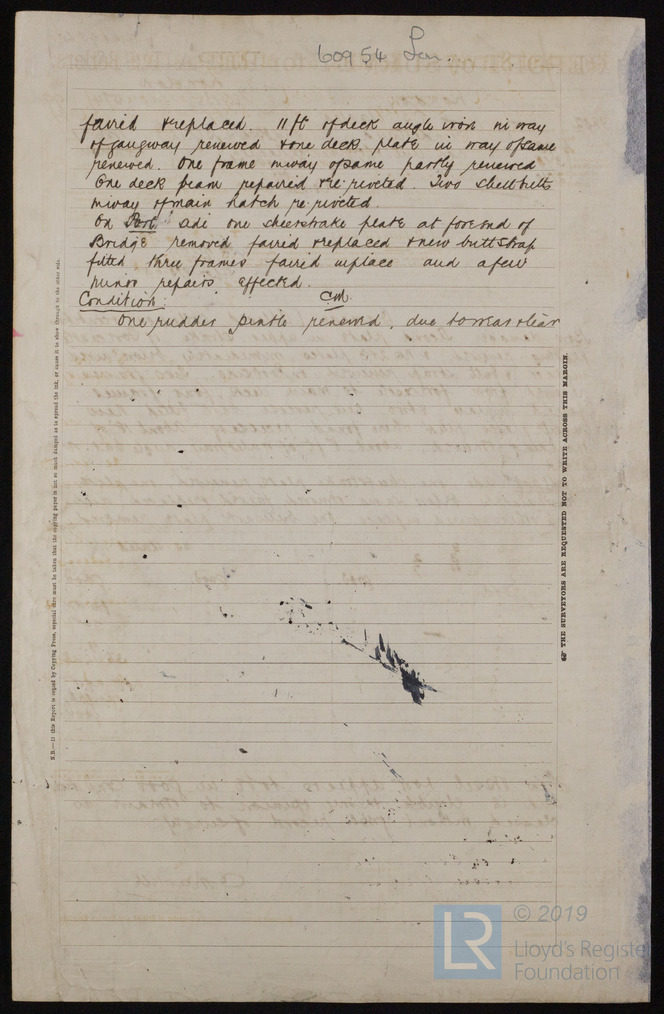 60954 Lon.
faired & replaced. 11 ft of deck angle iron in way
of gangway renewed & one deck plate in way of same
renewed. One frame inway of same partly renewed
One deck beam repaired & re-riveted. Two shell butts
inway of main hatch re-riveted.
On Port side one sheerstrake plate at fore end of
Bridge removed faired & replaced & new butt strap
fitted three frames faired inplace and a few
minor repairs effected.
Condition:
One rudder pintle renewed, due to wear & tear
N.B.—If this Report is copied by Copying Press, especial care must be taken that the copying paper is not so much damped as to spread the ink, or cause it to show through to the other side.
THE SURVEYORS ARE REQUESTED NOT TO WRITE ACROSS THIS MARGIN.
LR
© 2019
Lloyd's Register
Foundation